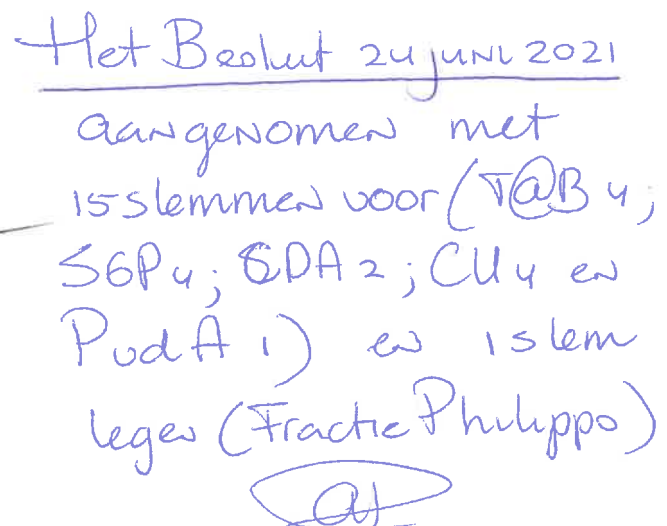 Het Besluit 24 juni 2021
aangenomen met
15 stemmen voor (T@B 4;
SGP 4; CDA 2; CU 4 en
PvdA 1) en 1 stem
tegen (Fractie Philippo)